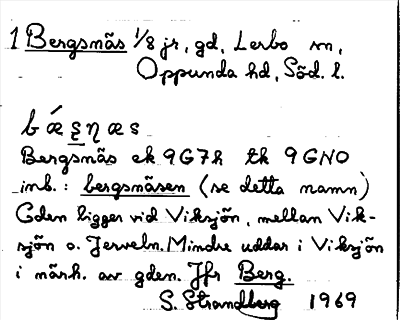 1 Bergsnäs 1/8 jr, gd, Lerbo sn,
Oppunda hd, Söd. l.
bǽs̱ŋæs
Bergsnäs ek 9G7h tk 9GNO
inb.: bergsnäsen (se detta namn)
Gden ligger vid Viksjön, mellan Vik-
sjön o. Jerveln. Mindre uddar i Viksjön
i närh. av gden. Jfr Berg.
S. Strandberg 1969